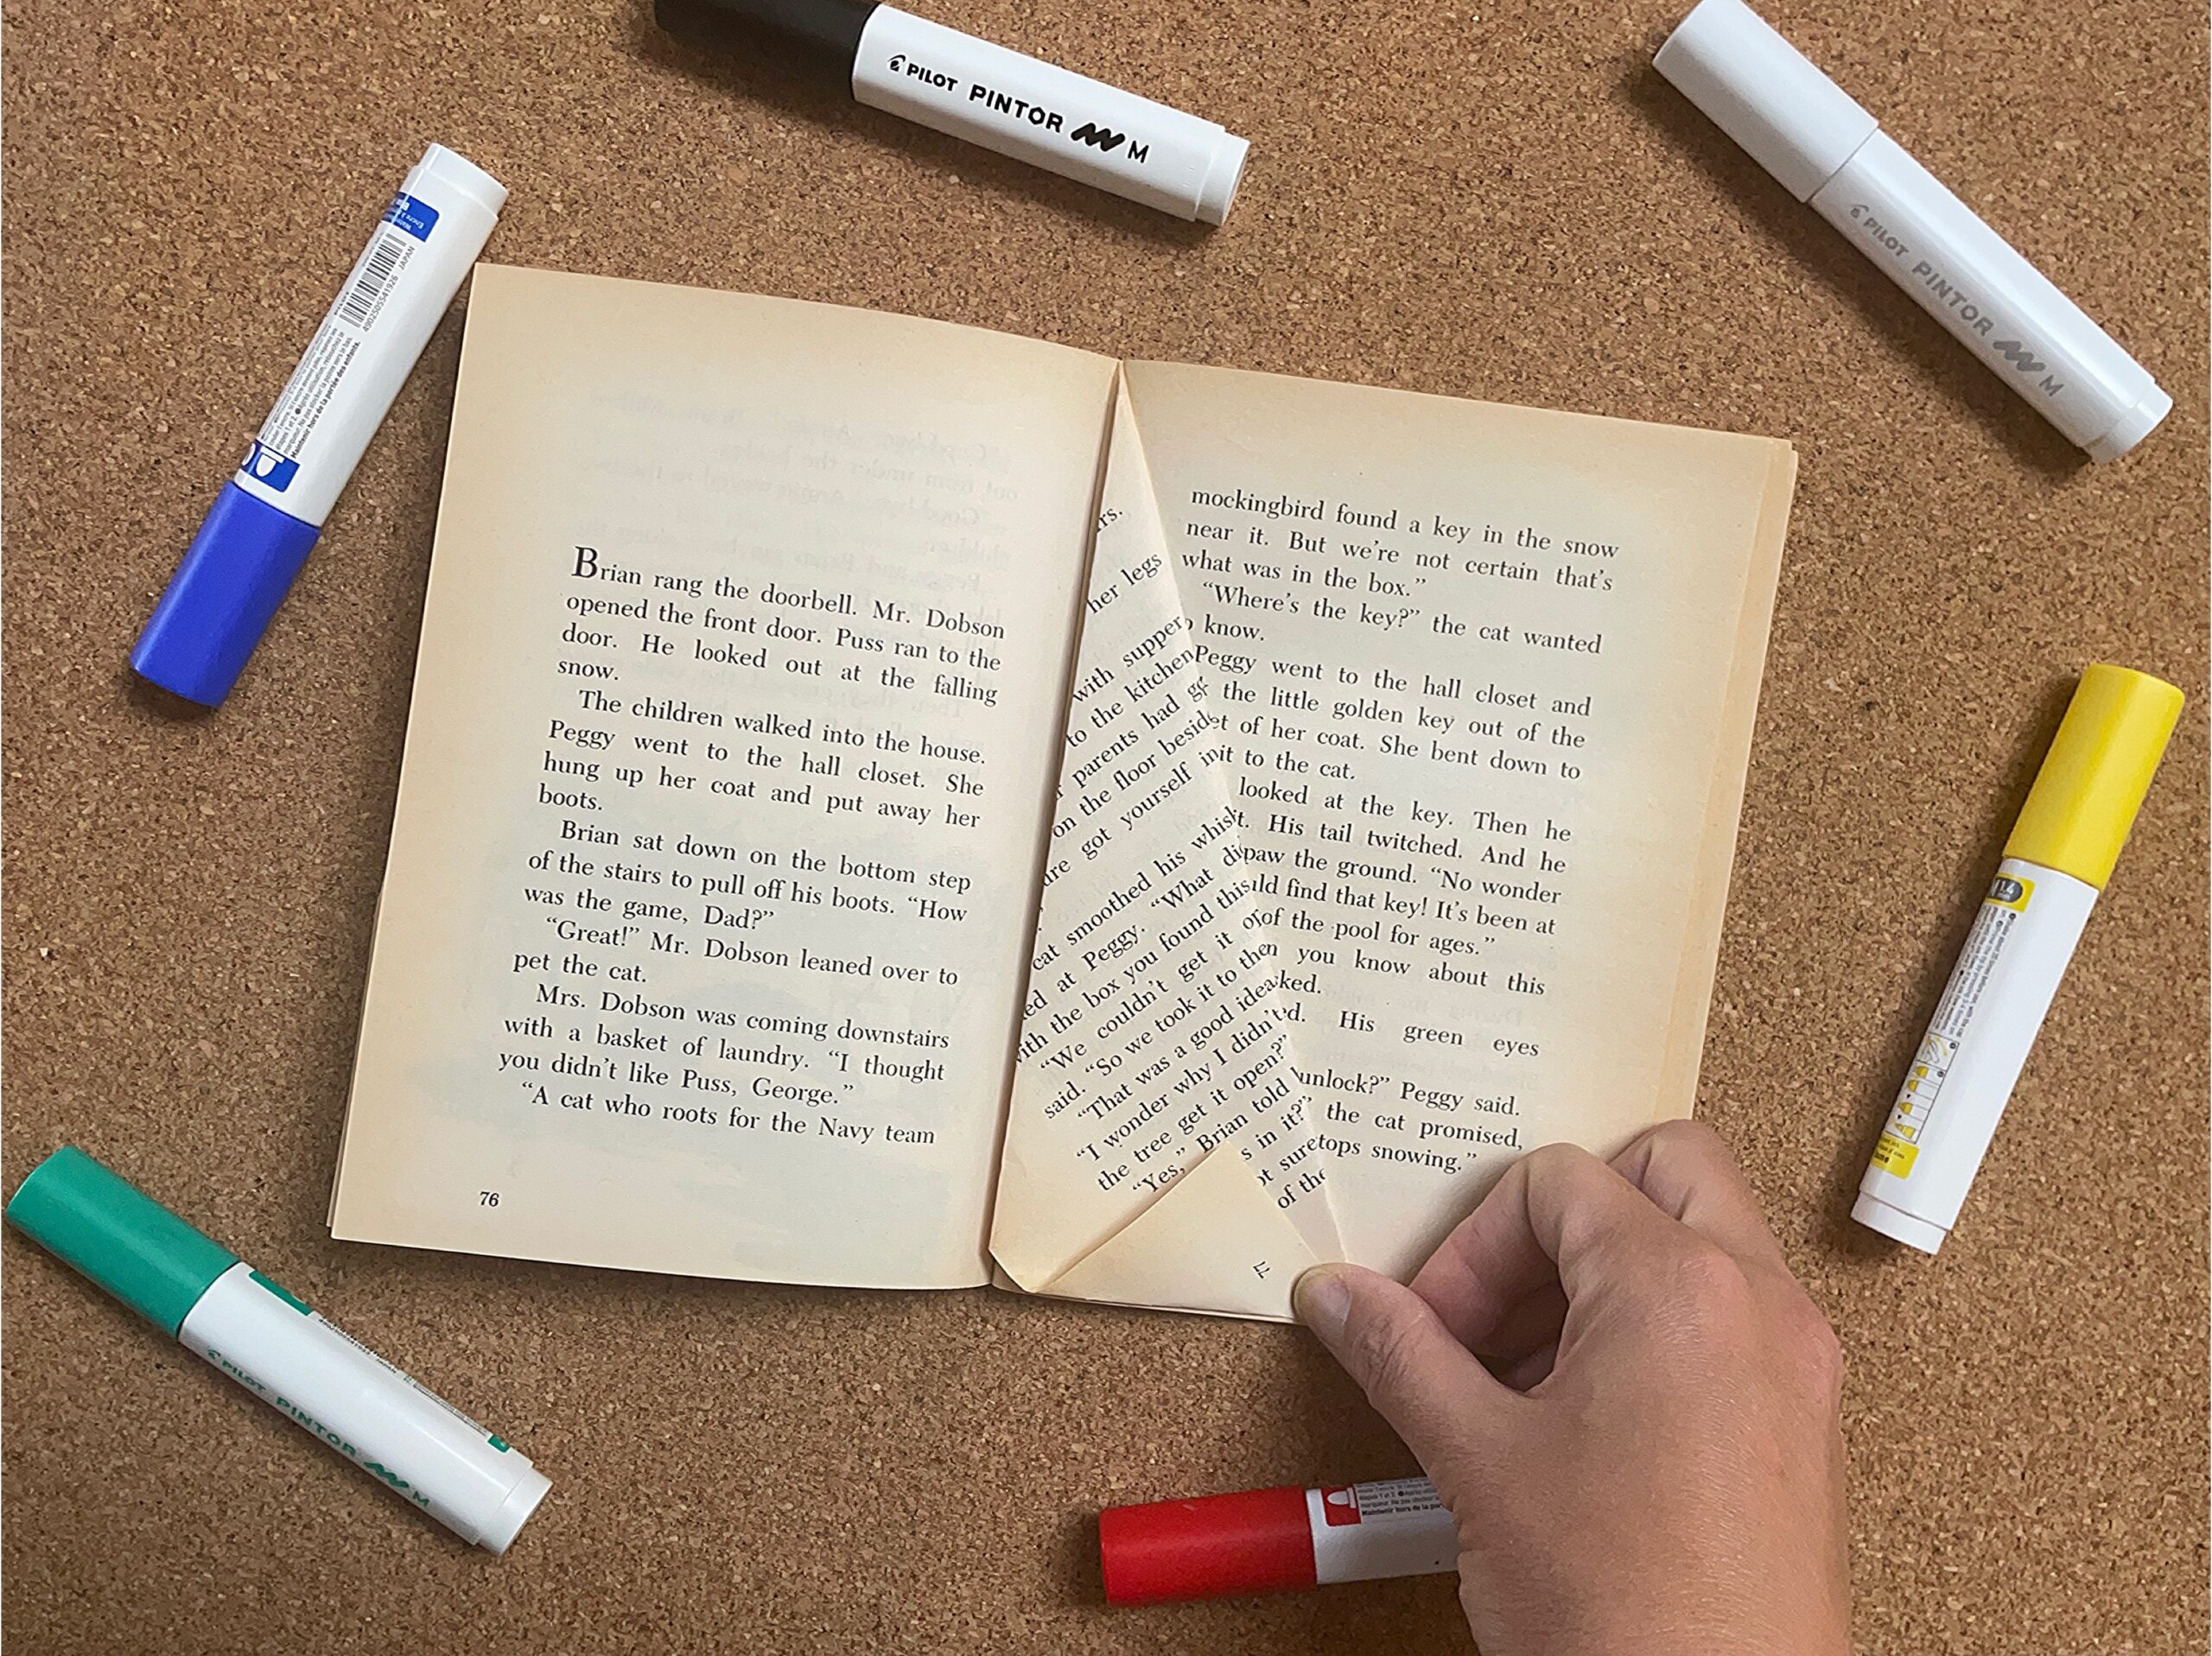 PILOT PINTOR M
PILOT PINTOR M
4902505541926 JAPAN
Maintenir hors de la portée des enfants.
Brian rang the doorbell. Mr. Dobson
opened the front door. Puss ran to the
door. He looked out at the falling
snow.
The children walked into the house.
Peggy went to the hall closet. She
hung up her coat and put away her
boots.
Brian sat down on the bottom step
of the stairs to pull off his boots. “How
was the game, Dad?”
“Great!” Mr. Dobson leaned over to
pet the cat.
Mrs. Dobson was coming downstairs
with a basket of laundry. “I thought
you didn’t like Puss, George.”
“A cat who roots for the Navy team
76
her legs
with supper
to the kitchen
parents had
on the floor
got yourself
cat smoothed his
at Peggy. “What
the box you found this
“We couldn’t get it
said. “So we took it to
“That was a good idea
“I wonder why I didn’t
the tree get it open?”
“Yes,” Brian told
in it?”
sure
of
77
mockingbird found a key in the snow
near it. But we’re not certain that’s
what was in the box.”
“Where’s the key?” the cat wanted
know.
Peggy went to the hall closet and
the little golden key out of the
of her coat. She bent down to
it to the cat.
looked at the key. Then he
His tail twitched. And he
paw the ground. “No wonder
find that key! It’s been at
of the pool for ages.”
you know about this
His green eyes
unlock?” Peggy said.
the cat promised,
snowing.”
PILOT PINTOR M
Maintenir hors de la